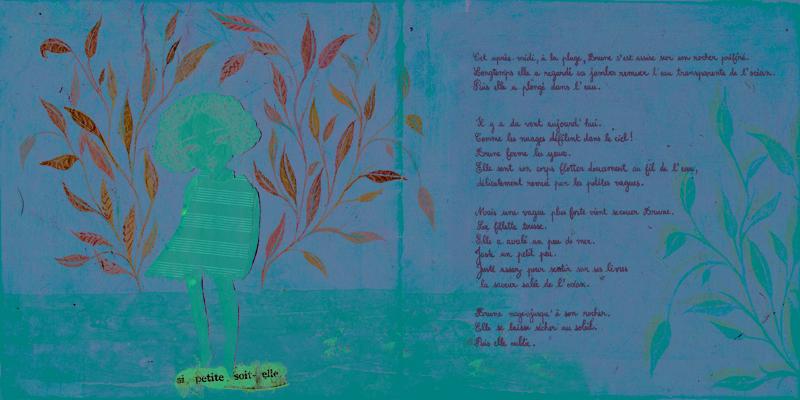 si petite soit-elle
Cet après-midi, à la plage, Brune s'est assise sur son rocher préféré.
Longtemps elle a regardé sa jambes remuer l'eau transparente de l'océan.
Puis elle a plongé dans l'eau.
Il y a du vent aujourd'hui.
Comme les nuages défilent dans le ciel !
Brune ferme les yeux.
Elle sent son corps flotter doucement au fil de l'eau,
délicatement remué par les petites vagues.
Mais une vague plus forte vient secouer Brune.
La fillette tousse.
Elle a avalé un peu de mer.
Juste un petit peu.
Juste assez pour sentir sur ses lèvres
la saveur salée de l'océan.
Brune nage jusqu'à son rocher.
Elle se laisse sécher au soleil.
Puis elle oublie.